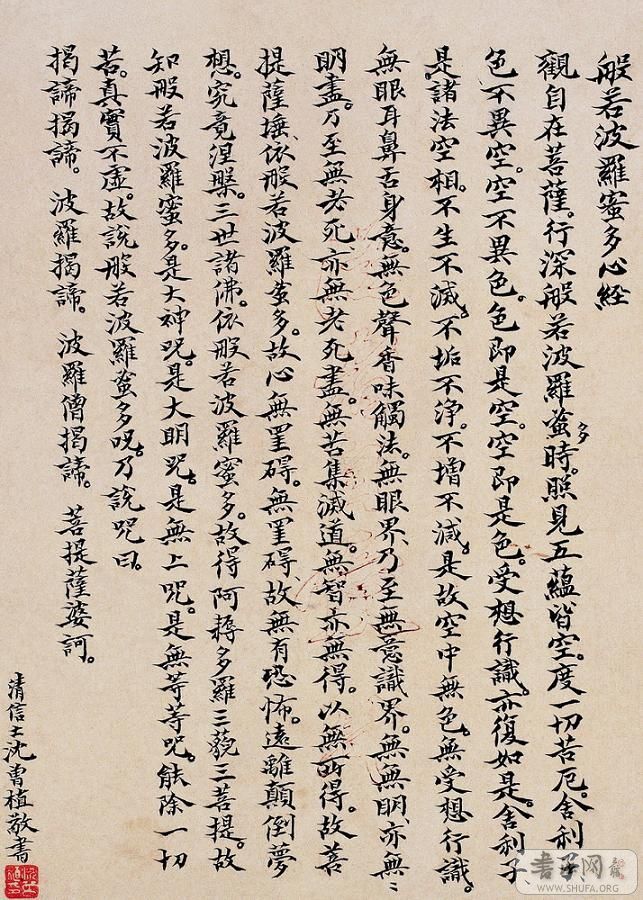 般若波羅蜜多心経
觀自在菩薩。行深般若波羅蜜多時。照見五蘊皆空。度一切苦厄。舍利子、
色不異空。空不異色。色即是空。空即是色。受想行識。亦復如是。舍利子、
是諸法空相。不生不滅。不垢不淨。不增不減。是故空中無色。無受想行識。
無眼耳鼻舌身意。無色聲香味觸法。無眼界、乃至無意識界。無無明、亦無〻
明盡。乃至無老死亦無老死盡。無苦集滅道。無智亦無得。以無所得。故菩
提薩埵、依般若波羅蜜多。故心無罣碍。無罣碍、故無有恐怖。遠離顛倒夢
想。究竟涅槃。三世諸佛。依般若波羅蜜多。故得阿耨多羅三藐三菩提。故
知般若波羅蜜多。是大神咒。是大明咒。是無上咒。是無等等咒。能除一切
苦。真實不虛。故說般若波羅蜜多呪。乃說咒曰。
揭諦揭諦。波羅揭諦。波羅僧揭諦。菩提薩婆訶。
清信士沈曾植敬書
书法网
WWW.SHUFA.ORG